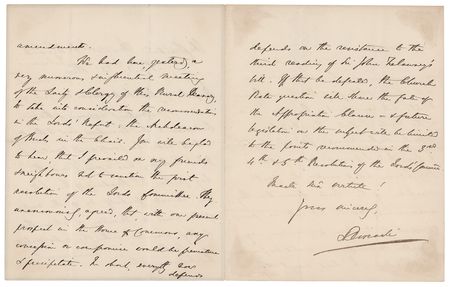 amendments.
We had here, yesterday, a
very numerous & influential meeting
of the Laity & Clergy of this Rural Deanery,
to take into consideration the recommendations
in the Lords' Report: the Archdeacon
of Bucks in the Chair. You will be glad
to hear, that I prevailed on my friends
& neighbours not to sanction the first
resolution of the Lords Committee. They
unanimously, agreed, that with our present
prospect in the House of Commons, any
concession or compromise would be premature
& precipitate. In short, everything now
depends
depends on the resistance to the
third reading of Sir John Trelawny's
bill. If that be defeated, the Church
Rate question will share the fate of
the Appropriation Clause, & future
legislation on the subject will be limited
to the points recommended in the 3rd
4th & 5th Resolution of the Lords' Committee
Macte virtute!
Yours sincerely,
Disraeli